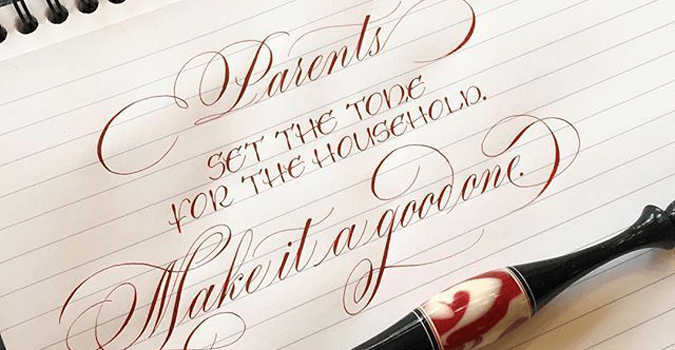 Parents
SET THE TONE
FOR THE HOUSEHOLD.
Make it a good one.